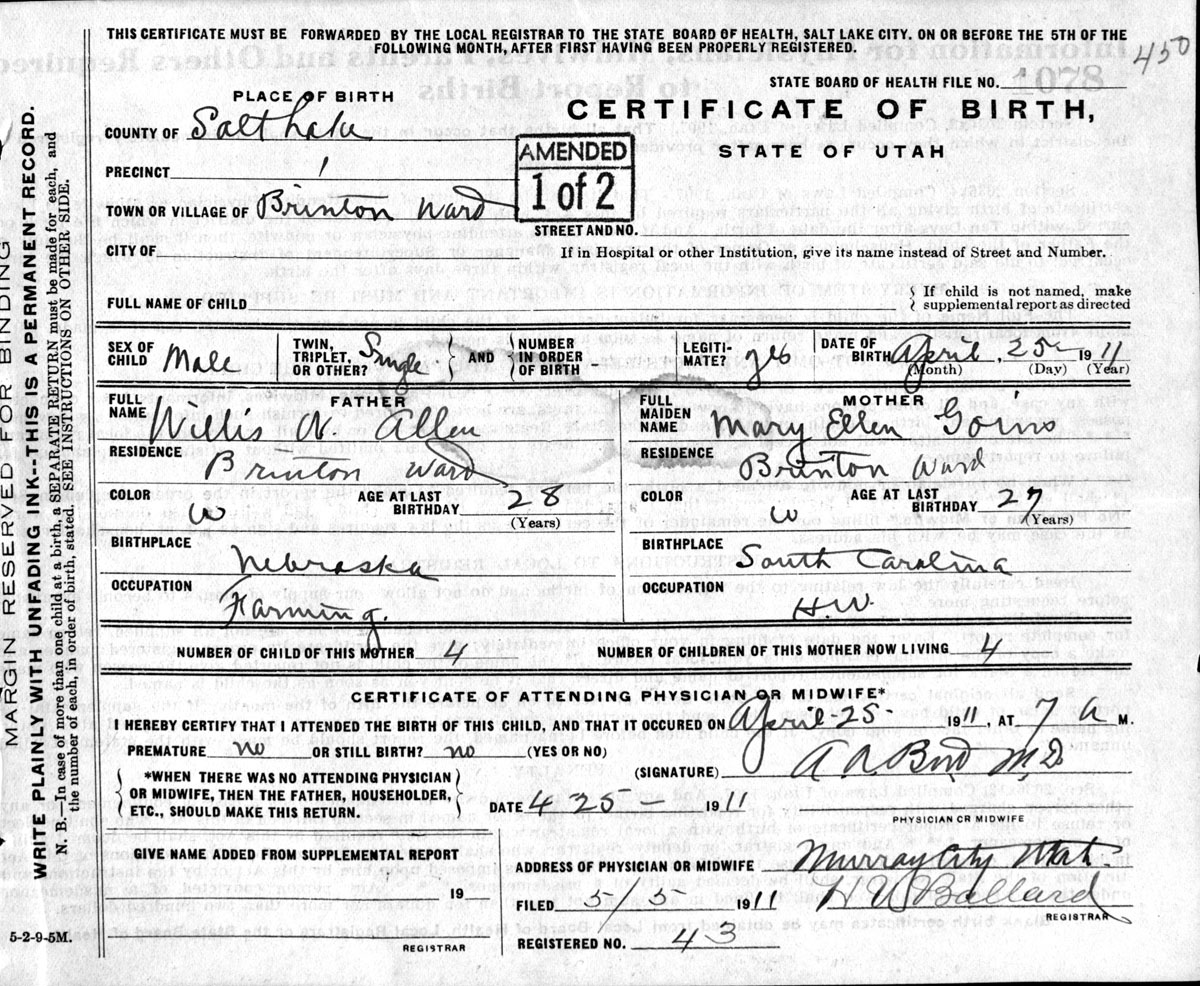 THIS CERTIFICATE MUST BE FORWARDED BY THE LOCAL REGISTRAR TO THE STATE BOARD OF HEALTH, SALT LAKE CITY. ON OR BEFORE THE 5TH OF THE
FOLLOWING MONTH, AFTER FIRST HAVING BEEN PROPERLY REGISTERED.
450
STATE BOARD OF HEALTH FILE NO. 1078
PLACE OF BIRTH
CERTIFICATE OF BIRTH,
STATE OF UTAH
COUNTY OF Salt Lake
AMENDED
1 of 2
PRECINCT 1
TOWN OR VILLAGE OF Brinton Ward
STREET AND NO.
CITY OF
If in Hospital or other Institution, give its name instead of Street and Number.
FULL NAME OF CHILD
{ If child is not named, make
supplemental report as directed
SEX OF CHILD Male
TWIN, TRIPLET, OR OTHER? Single } AND { NUMBER IN ORDER OF BIRTH
LEGITI-MATE? yes
DATE OF BIRTH April 25 1911
(Month) (Day) (Year)
FATHER
FULL NAME Willis N. Allen
RESIDENCE Brinton Ward
COLOR W AGE AT LAST BIRTHDAY 28
(Years)
BIRTHPLACE Nebraska
OCCUPATION Farming.
MOTHER
FULL MAIDEN NAME Mary Ellen Goins
RESIDENCE Brinton Ward
COLOR W AGE AT LAST BIRTHDAY 27
(Years)
BIRTHPLACE South Carolina
OCCUPATION H.W.
NUMBER OF CHILD OF THIS MOTHER 4 NUMBER OF CHILDREN OF THIS MOTHER NOW LIVING 4
CERTIFICATE OF ATTENDING PHYSICIAN OR MIDWIFE*
I HEREBY CERTIFY THAT I ATTENDED THE BIRTH OF THIS CHILD, AND THAT IT OCCURED ON April-25- 1911, AT 7 a M.
PREMATURE no OR STILL BIRTH? no (YES OR NO)
{ *WHEN THERE WAS NO ATTENDING PHYSICIAN
OR MIDWIFE, THEN THE FATHER, HOUSEHOLDER,
ETC., SHOULD MAKE THIS RETURN. }
(SIGNATURE) M.D
DATE 4 25 - 1911
PHYSICIAN OR MIDWIFE
GIVE NAME ADDED FROM SUPPLEMENTAL REPORT
19
REGISTRAR
ADDRESS OF PHYSICIAN OR MIDWIFE Murray City Utah
FILED 5/3 - 1911 Ballard
REGISTRAR
REGISTERED NO. 43
5-2-9-5M.
MARGIN RESERVED FOR BINDING
WRITE PLAINLY WITH UNFADING INK--THIS IS A PERMANENT RECORD.
N. B.—In case of more than one child at a birth, a SEPARATE RETURN must be made for each, and
the number of each, in order of birth, stated. SEE INSTRUCTIONS ON OTHER SIDE.